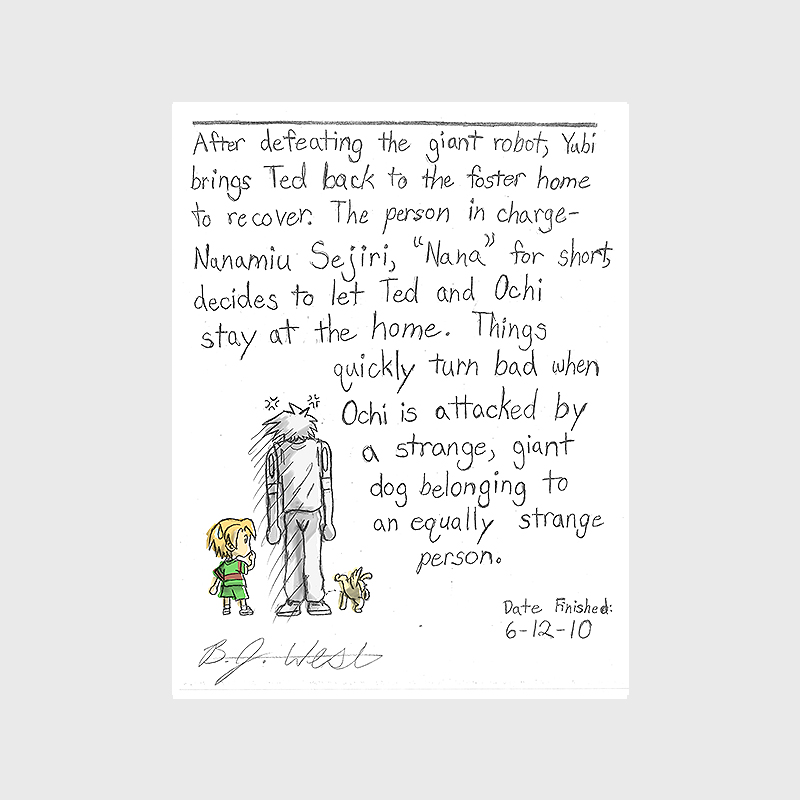 After defeating the giant robot, Yubi
brings Ted back to the foster home
to recover. The person in charge-
Nanamiu Sejiri, "Nana" for short,
decides to let Ted and Ochi
stay at the home. Things
quickly turn bad when
Ochi is attacked by
a strange, giant
dog belonging to
an equally strange
person.
Date Finished:
6-12-10
B.J. West